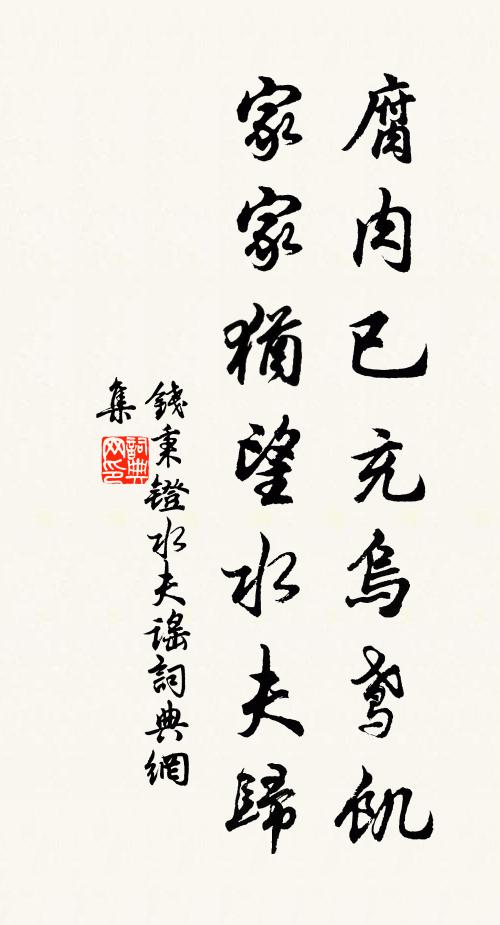 腐肉已充烏鳶飢
家家猶望水夫歸
錢秉鐙水夫謠詞典網
集
詞典
网印